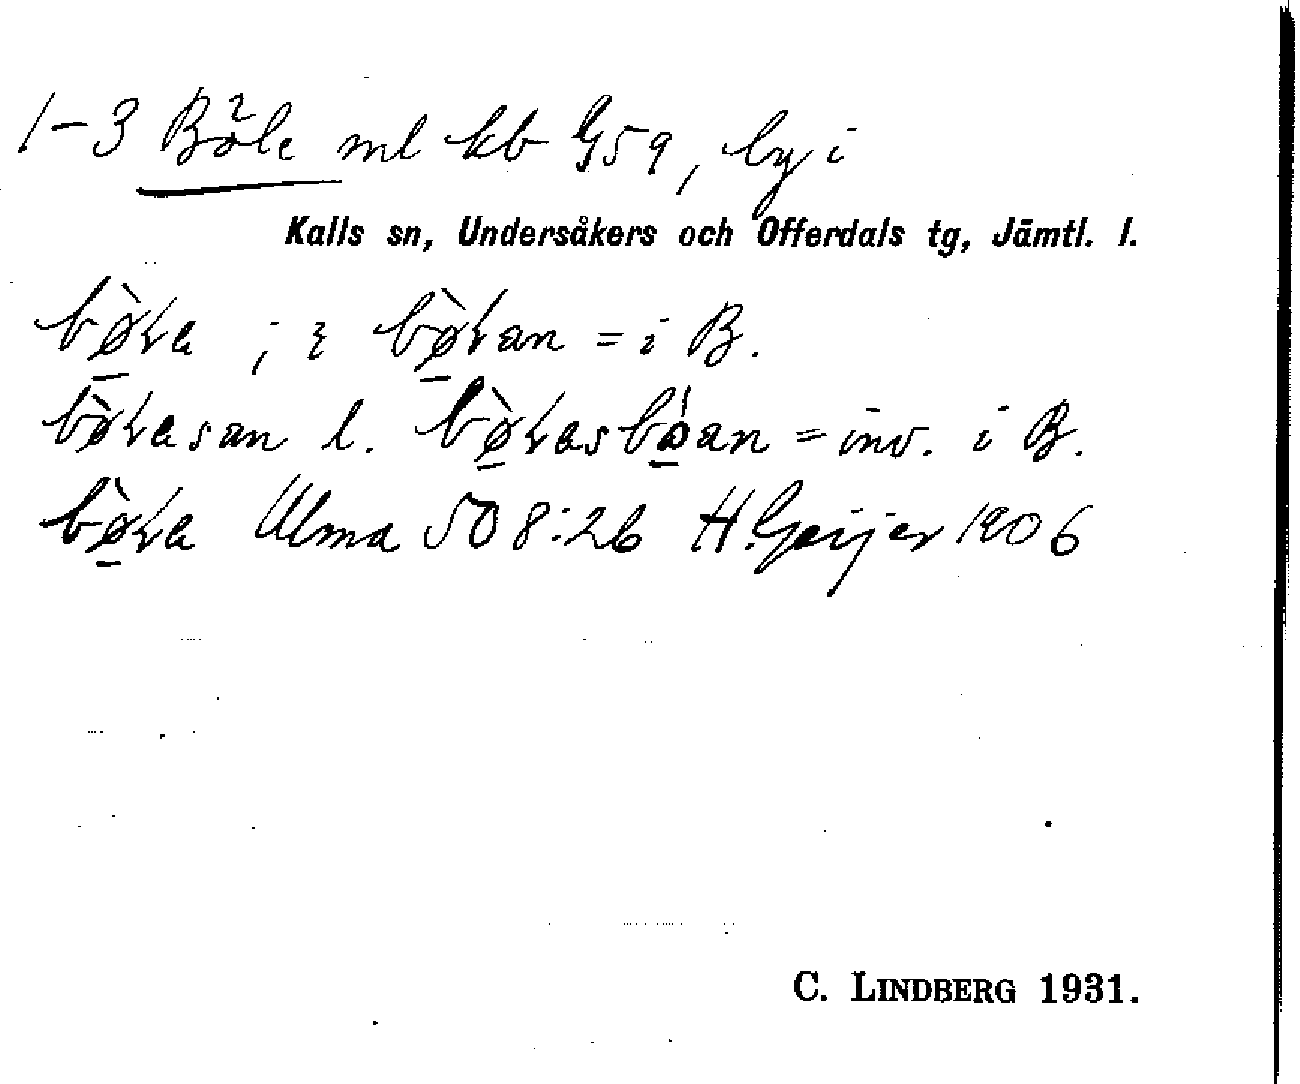 1-3 Böle ml kb G59, by i
Kalls sn, Undersåkers och Offerdals tg, Jämtl. l.
bø̀ła ; i bø̀łan = i B.
bø̀łasan l. bø̀łasbóan = inv. i B.
bø̀ła Ulma 508:26 H. Geijer 1906
C. LINDBERG 1931.